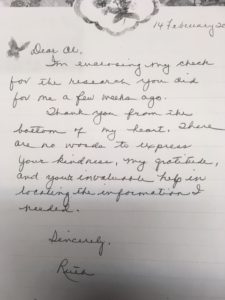 14 February 20
Dear Al.
I'm enclosing my check
for the research you did
for me a few weeks ago.
Thank you from the
bottom of my heart. There
are no words to express
your kindness, my gratitude,
and your invaluable help in
locating the information I
needed.
Sincerely,
Ruth